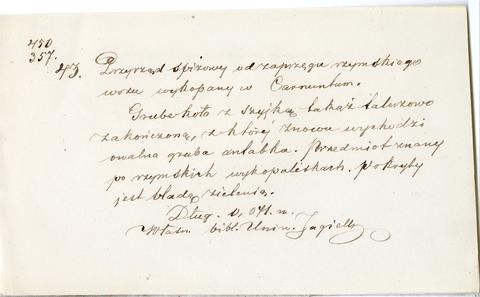 450
357.
43. Przyrząd spiżowy od zaprzęgu rzymskiego
wozu wykopany w Carnuntum.
Grube koło z szyjką takąż talerzowo
zakończoną, z której znowu wychodzi
owalna gruba antabka. Przedmiot znany
po rzymskich wykopaliskach. Pokryty
jest bladą zielenią.
Dług. 0,041. m.
Własn. bibl. Uniw. Jagiell.